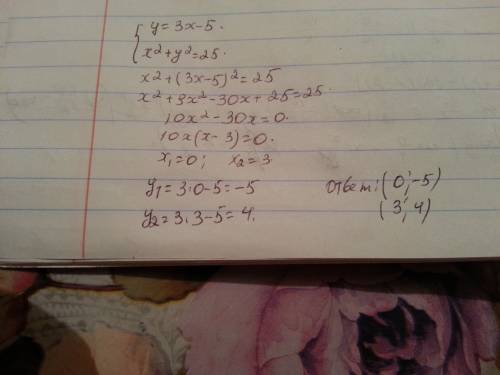 { y = 3x - 5.
x² + y² = 25.
x² + (3x - 5)² = 25
x² + 9x² - 30x + 25 = 25.
10x² - 30x = 0.
10x(x - 3) = 0.
x₁ = 0; x₂ = 3
y₁ = 3·0 - 5 = -5 ответ: (0; -5)
y₂ = 3·3 - 5 = 4. (3; 4)